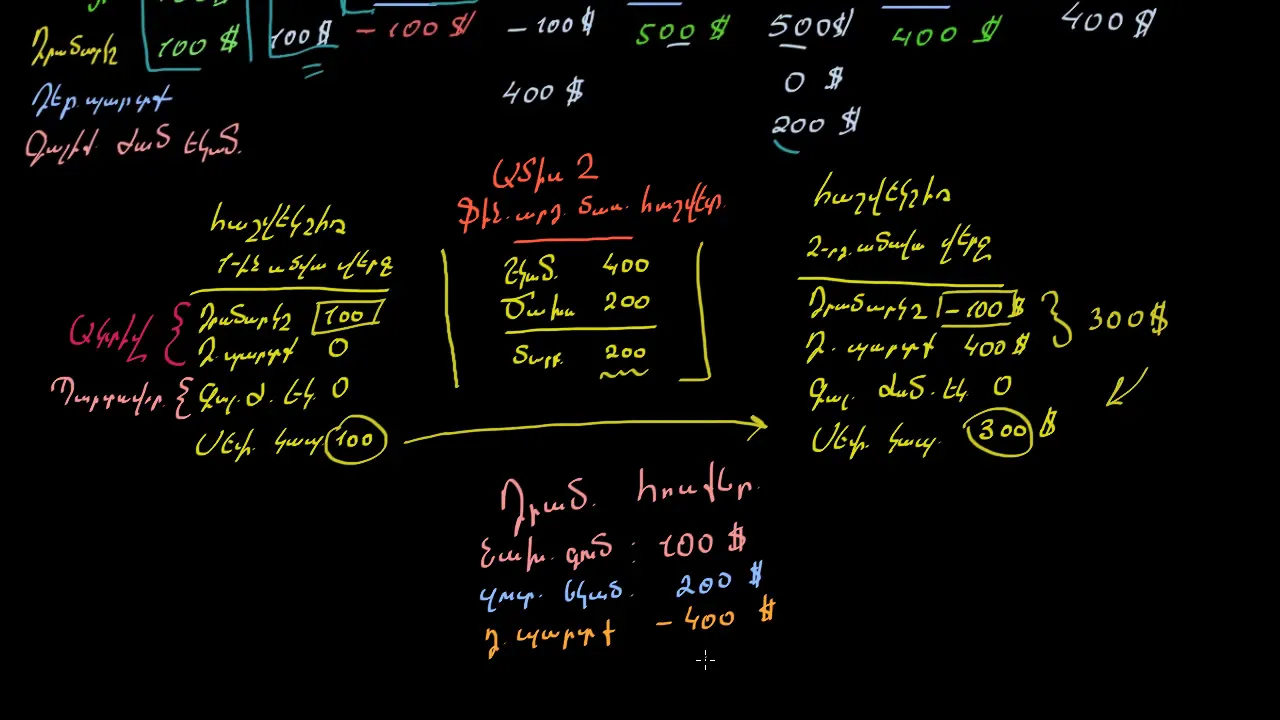 100 $
Դրամարկղ 100 $ 100 $ - 100 $ - 100 $ 500 $ 500 $ 400 $ 400 $
Դեբ. պարտք 400 $ 0 $
Գալիք ժամ եկամ. 200 $
Ամիս 2
Ֆին. արդ. մաս. հաշվետ.
հաշվեկշիռ
1-ին ամսվա վերջ
Դրամարկղ 100
Դ. պարտք 0
Գալ. ժ. եկ. 0
Սեփ. կապ. 100
Ակտիվ {
Պարտավոր. {
Եկամ. 400
Ծախս 200
200
հաշվեկշիռ
2-րդ ամսվա վերջ
Դրամարկղ - 100 $
Դ. պարտք 400 $
} 300 $
Գալ. ժամ. եկ. 0
Սեփ. կապ. 300 $
Դրամ. հոսքեր.
Նախ. գում : 100 $
զուտ. եկամ. 200 $
դ. պարտք - 400 $